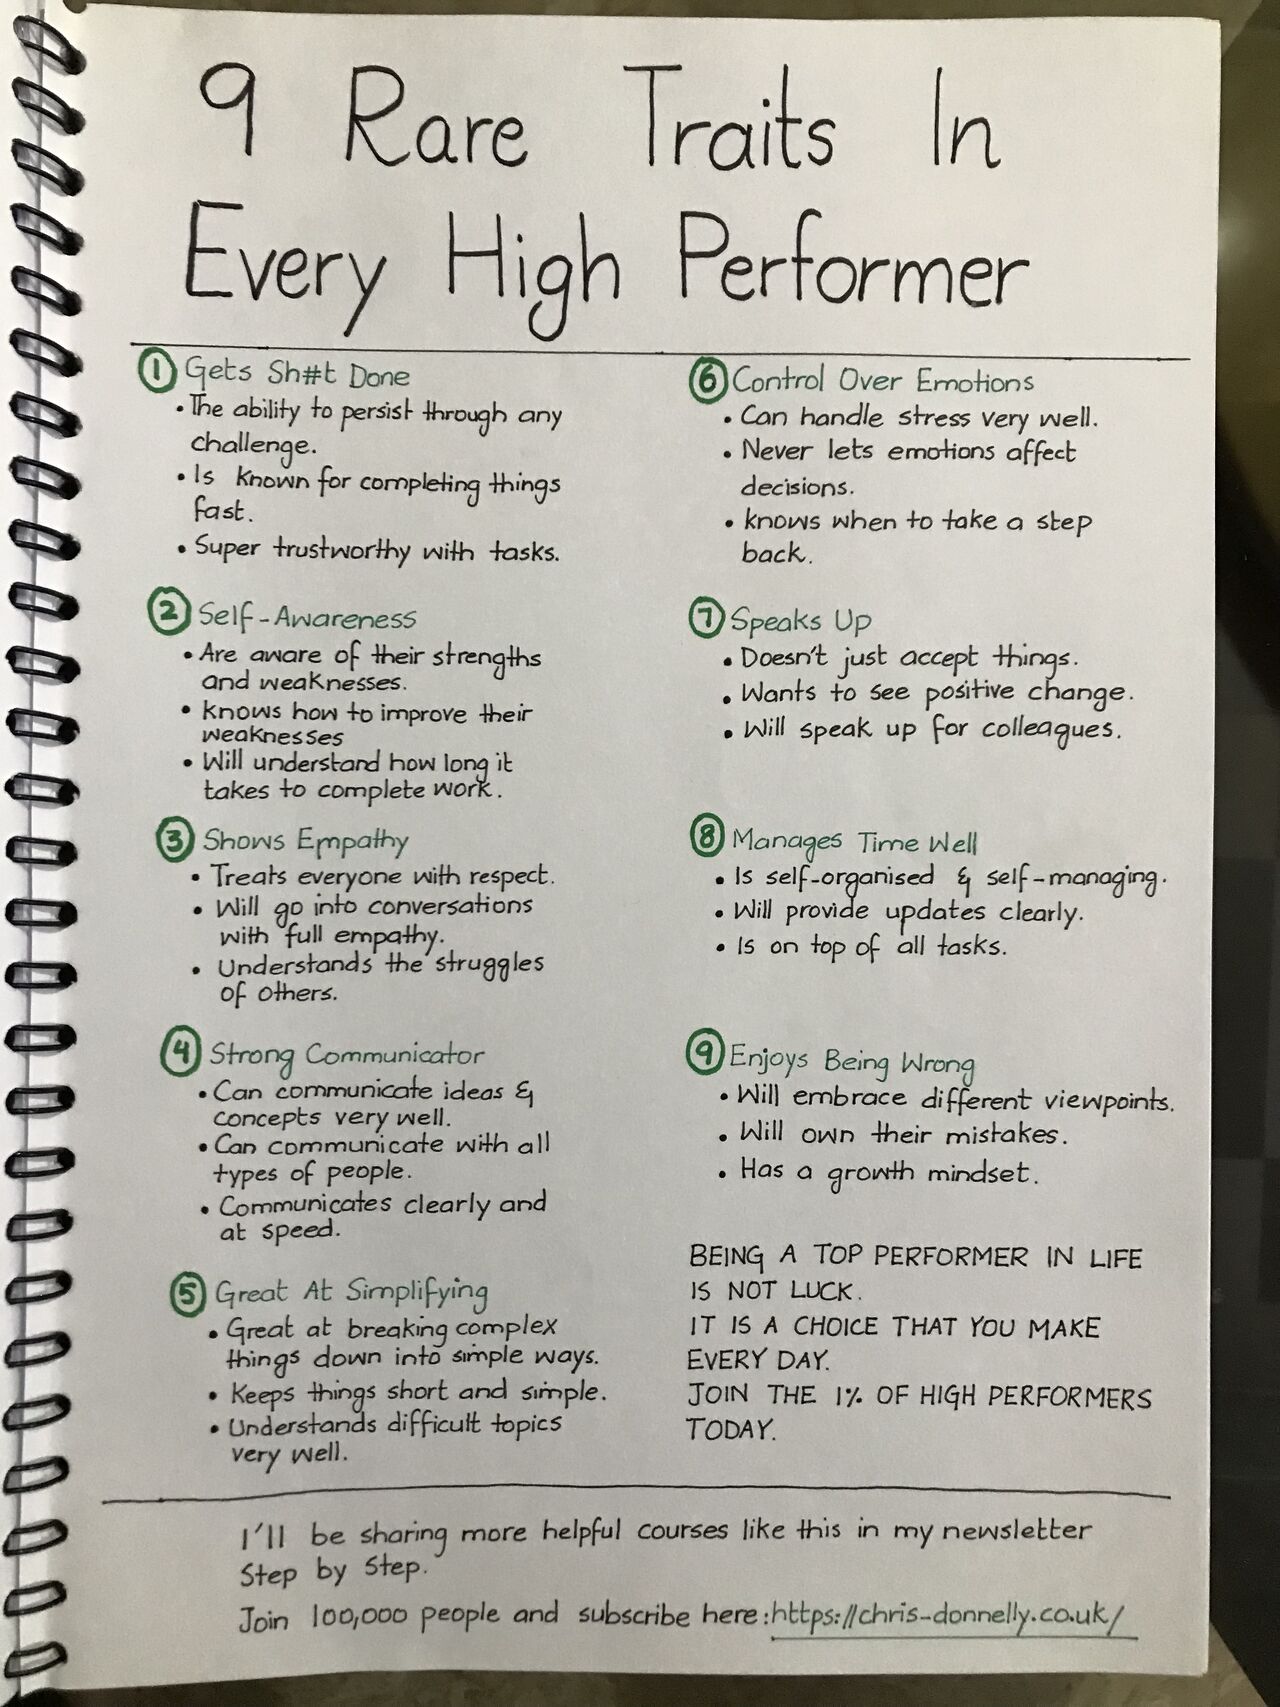 9 Rare Traits In
Every High Performer
1 Gets Sh#t Done
• The ability to persist through any
challenge.
• Is known for completing things
fast.
• Super trustworthy with tasks.
2 Self-Awareness
• Are aware of their strengths
and weaknesses.
• knows how to improve their
weaknesses
• Will understand how long it
takes to complete work.
3 Shows Empathy
• Treats everyone with respect.
• Will go into conversations
with full empathy.
• Understands the struggles
of others.
4 Strong Communicator
• Can communicate ideas &
concepts very well.
• Can communicate with all
types of people.
• Communicates clearly and
at speed.
5 Great At Simplifying
• Great at breaking complex
things down into simple ways.
• Keeps things short and simple.
• Understands difficult topics
very well.
6 Control Over Emotions
• Can handle stress very well.
• Never lets emotions affect
decisions.
• knows when to take a step
back.
7 Speaks Up
• Doesn't just accept things.
• Wants to see positive change.
• Will speak up for colleagues.
8 Manages Time Well
• Is self-organised & self-managing.
• Will provide updates clearly.
• Is on top of all tasks.
9 Enjoys Being Wrong
• Will embrace different viewpoints.
• Will own their mistakes.
• Has a growth mindset.
BEING A TOP PERFORMER IN LIFE
IS NOT LUCK.
IT IS A CHOICE THAT YOU MAKE
EVERY DAY.
JOIN THE 1% OF HIGH PERFORMERS
TODAY.
I'll be sharing more helpful courses like this in my newsletter
Step by Step.
Join 100,000 people and subscribe here: https://chris-donnelly.co.uk/